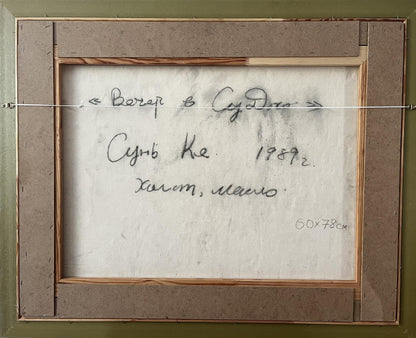 « Вечер в СуДжо »
Сунь Ке. 1989 г.
Холст, масло.
60×78см